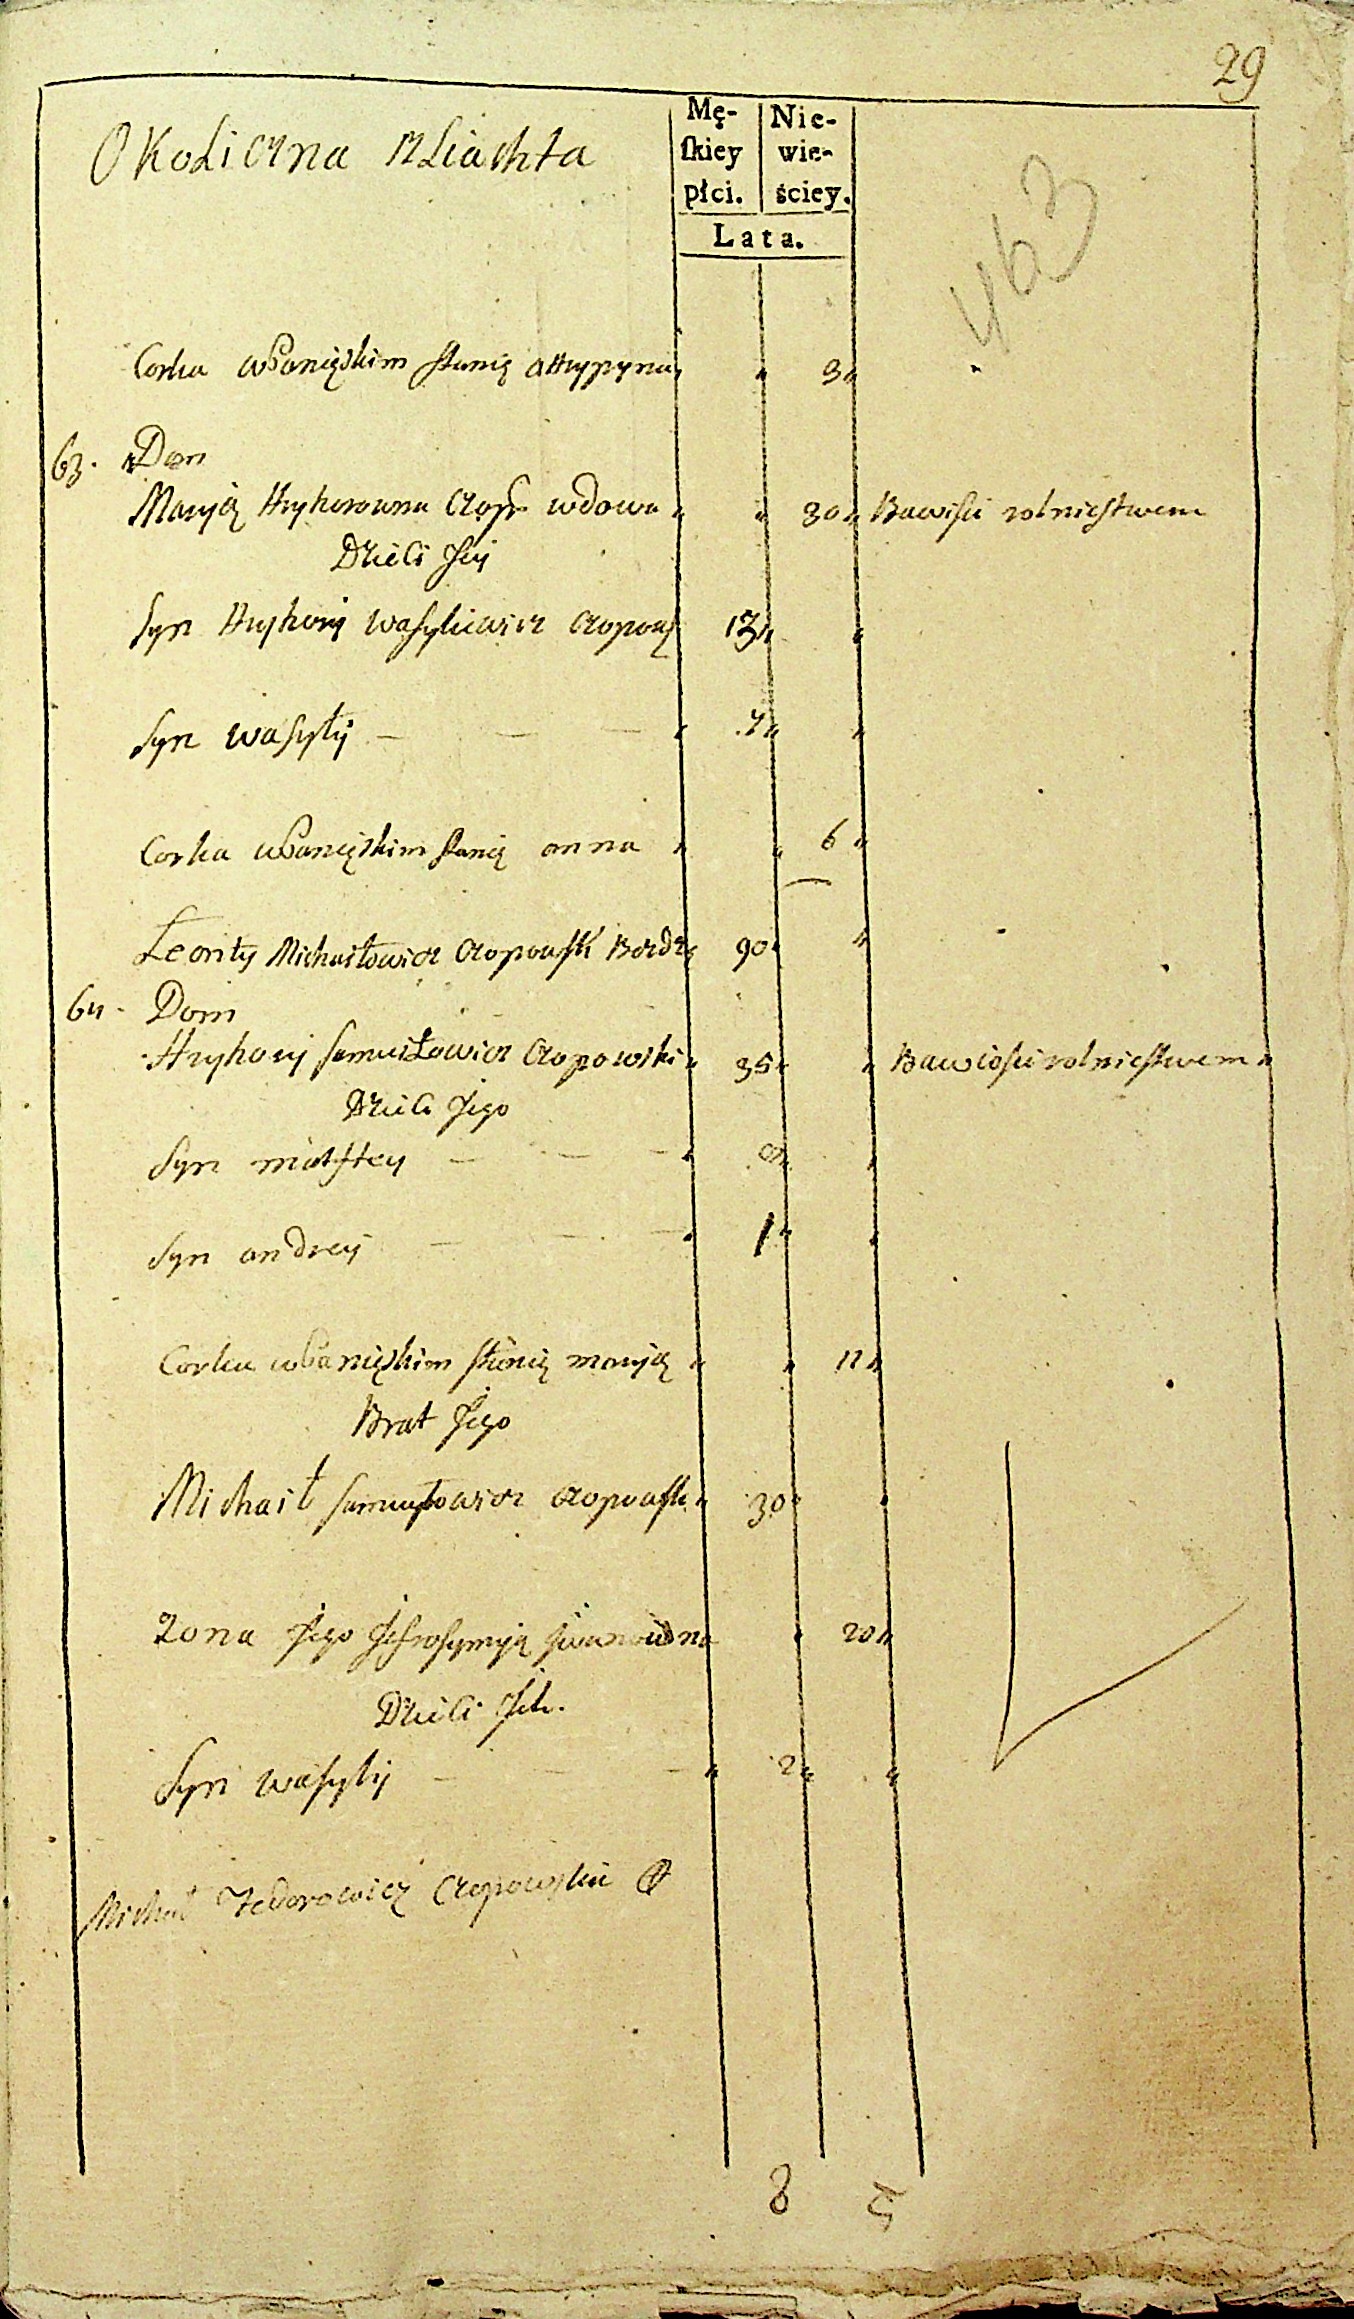 29
Okoliczna szliachta
Mę-
ſkiey
płci.
Nie-
wie-
ściey.
Lata.
463
Corka w Panięskim stanię Ahrypyna " 3 "
63. Dom
Maryią Hryhorowna Czop: wdowa " " 30 " Bawi sie rolnictwem
Dzieci Jey
Syn Hryhory Wasylewicz Czopows 13 " "
Syn Wasyly — — — " 7 " "
Corka w Panięskim stanię anna " " 6 "
Leonty Michaiłowicz Czopowski 90 " "
64. Dom
Hryhory Samuiłowicz Czopowski " 35 " " Bawi się rolnictwem "
Dzieci Jego
Syn — — — " 8 " "
Syn andrey — — — " 1 " "
Corka w Panięskim stanię maryią " " 11 "
Brat Jego
Michaił Samuyłowicz Czopowsk " 30 " "
Zona Jego Jefrosymyią Jwanowna " 20 "
Dzieci Jch.
Syn wasyly — — — " 2 " "
Michał Fedorowicz Czopowski
8 5